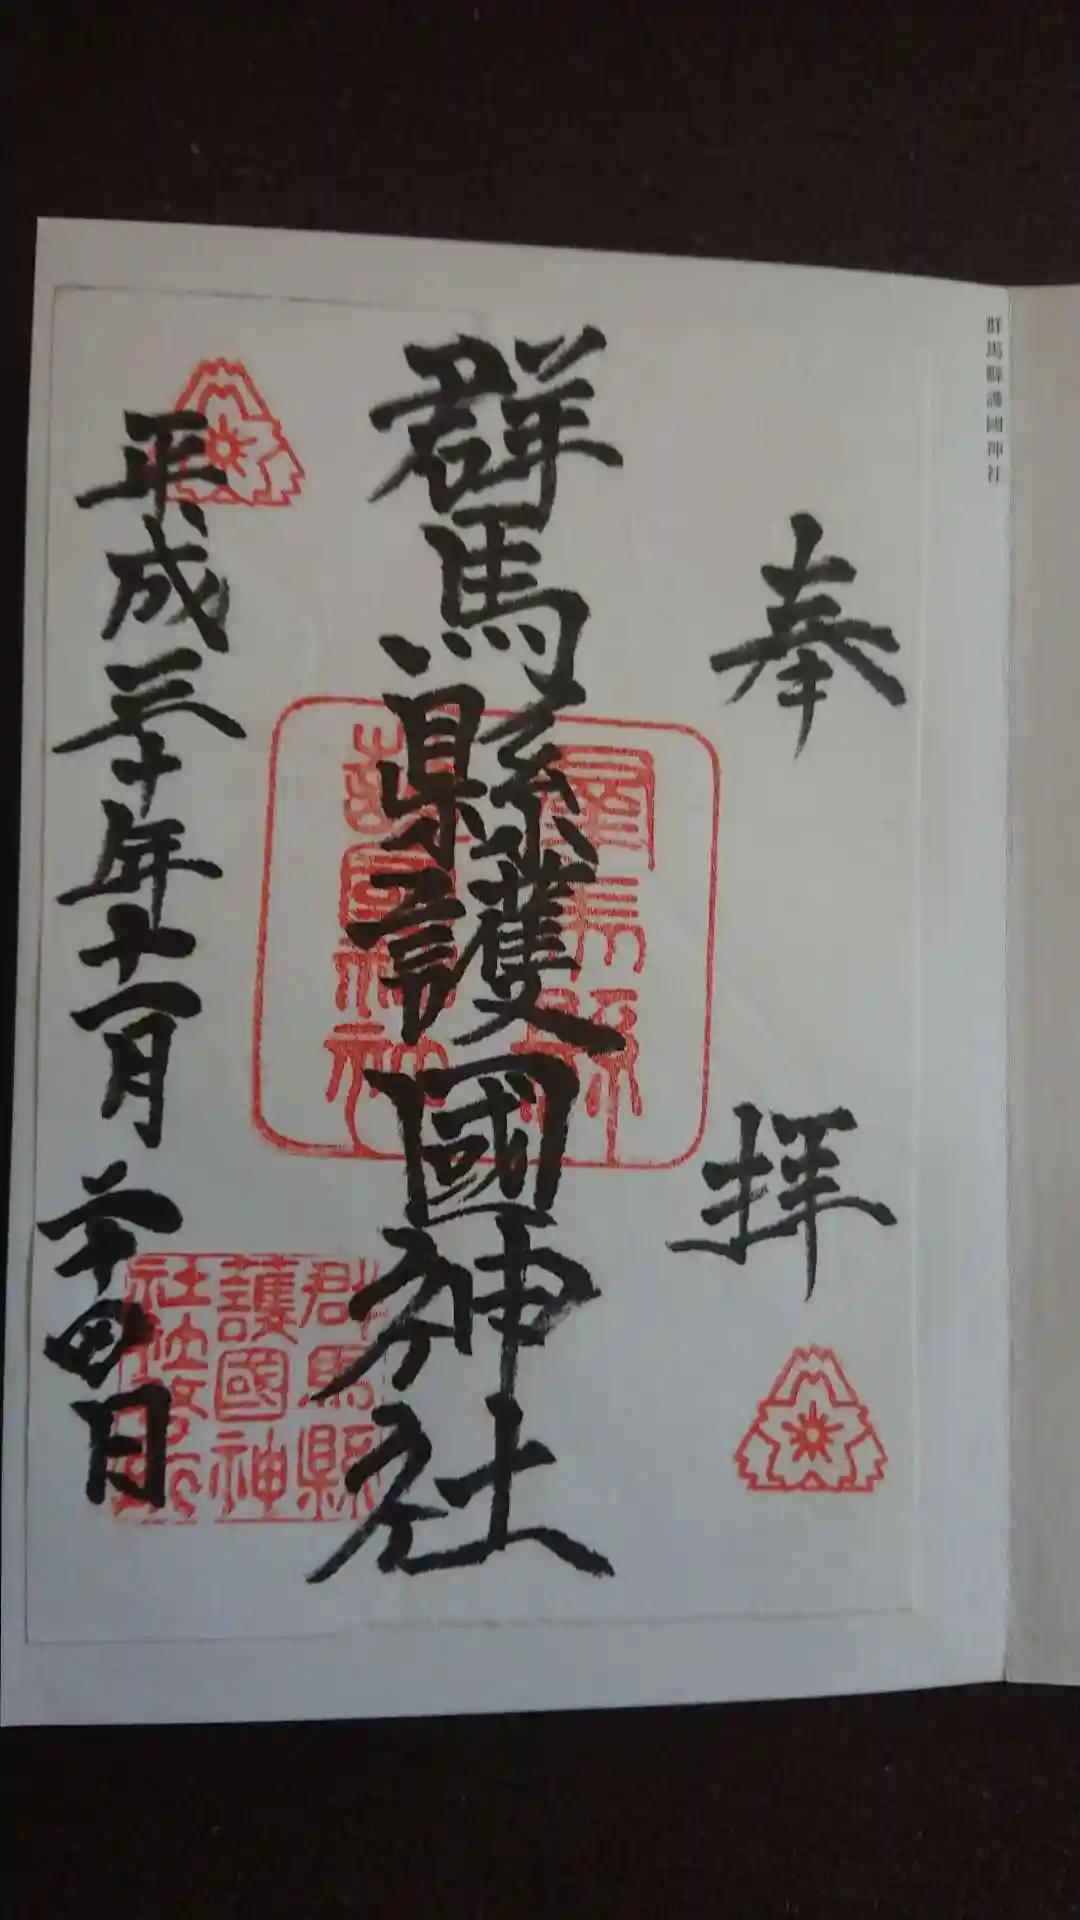 群馬縣護國神社
奉拝
群馬縣護國神社
平成三十年十一月二十四日
群馬縣
護國神